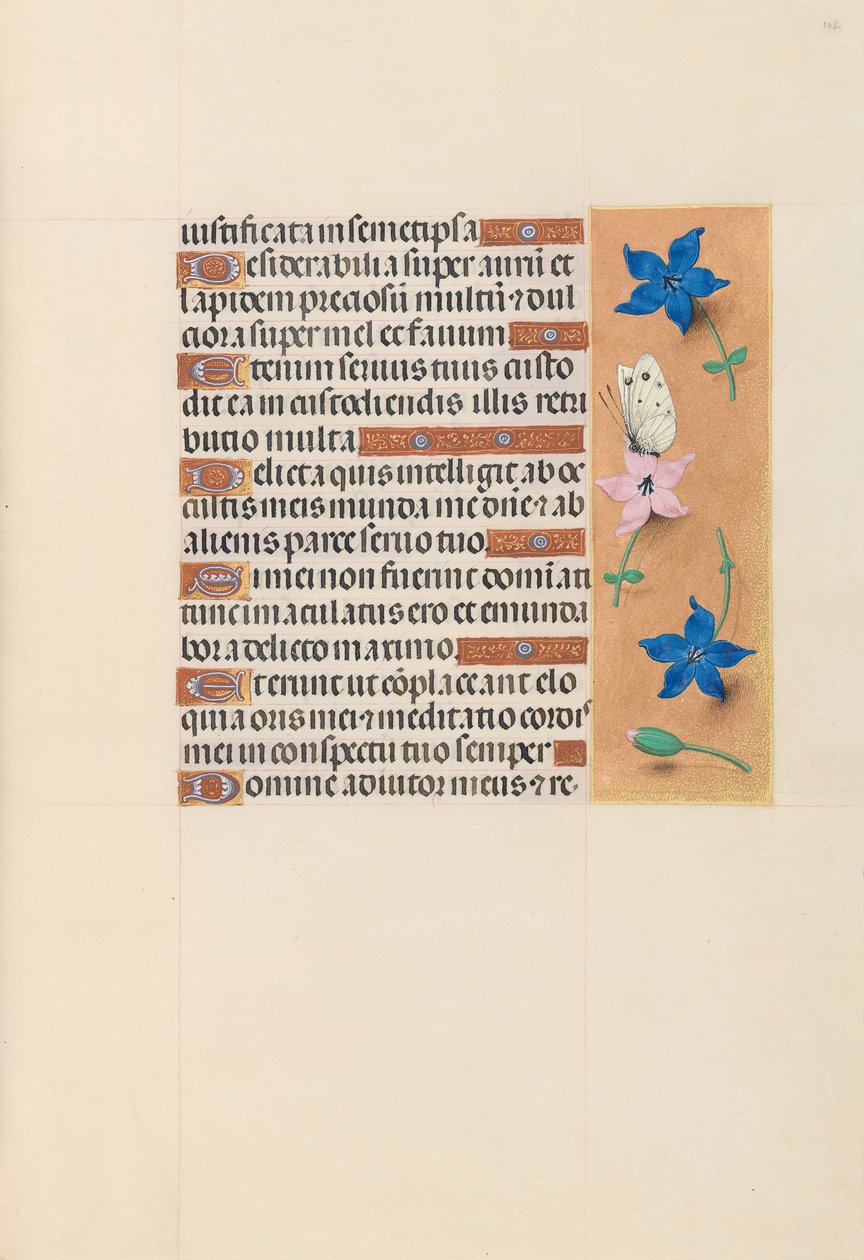 102
iustificata in semetipsa
Desiderabilia super aurū et
lapidem preciosū multū ⁊ dul
ciora super mel et fauum.
Etenim seruus tuus custo
dit ea in custodiendis illis retri
butio multa
Delicta quis intelligit ab oc
cultis meis munda me dn̄e ⁊ ab
alienis parce seruo tuo.
Si mei non fuerint domīati
tunc imaculatus ero et emunda
bor a delicto maximo.
Et erunt ut cōplaceant elo
quia oris mei ⁊ meditatio cordis
mei in conspectu tuo semper
Domine adiutor meus ⁊ re-